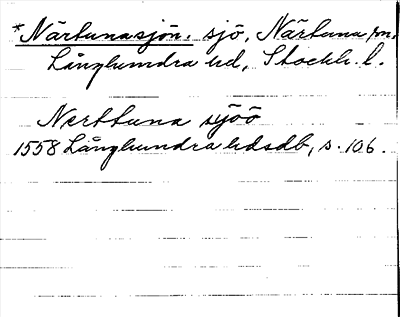 *Närtunasjön, sjö, Närtuna sn,
Långhundra hd, Stockh. l.
Nerttuna sjöö
1558 Långhundra hdsdb, s. 106.